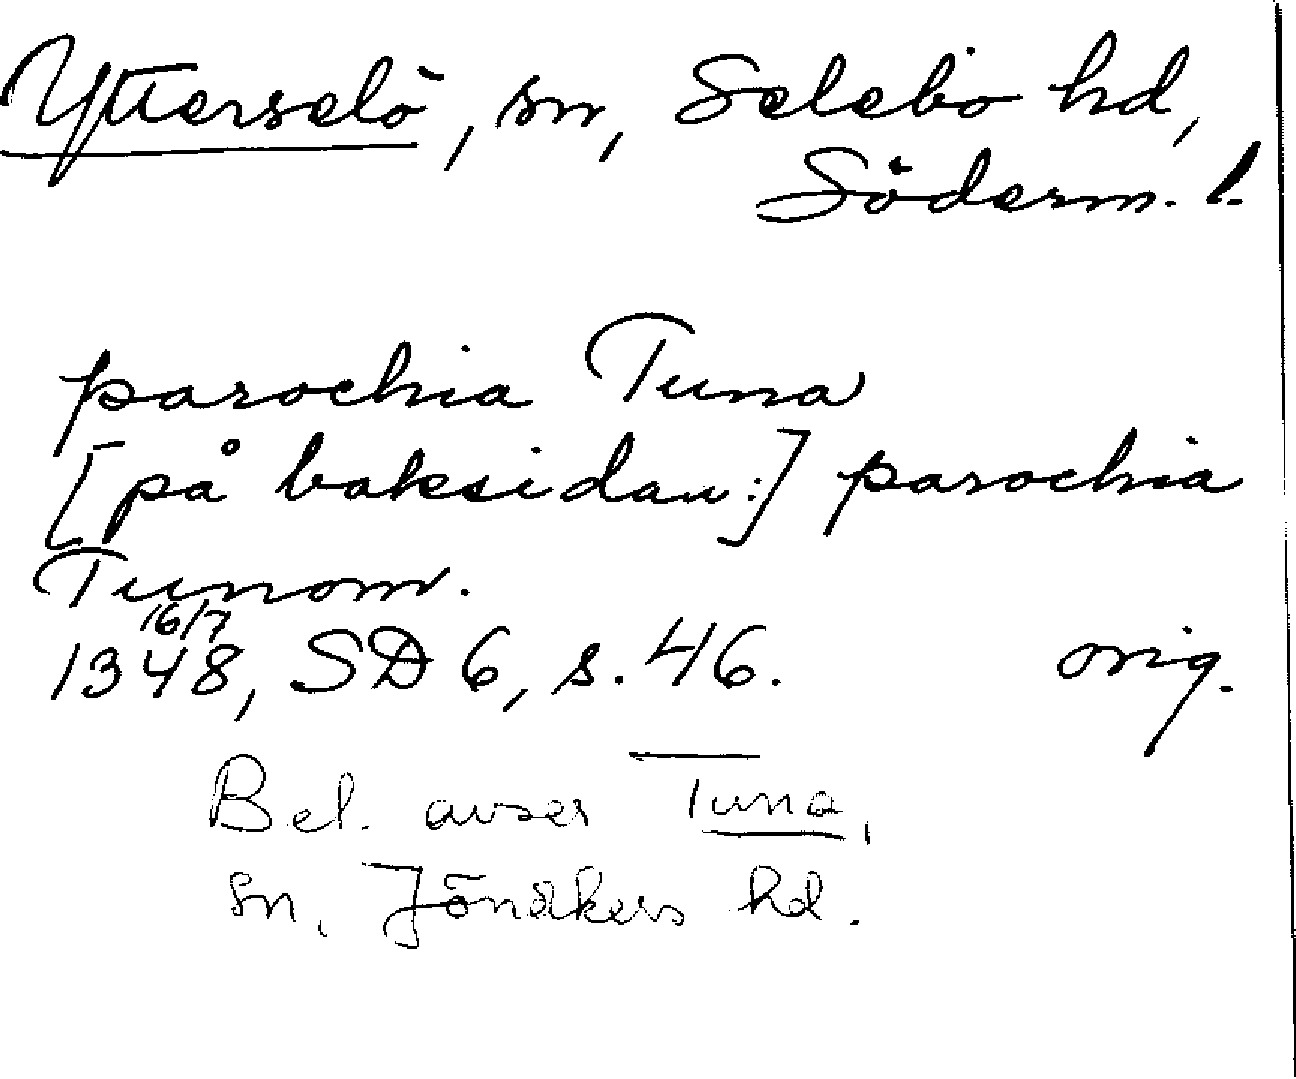 Ytterselö, sn, Selebo hd,
Söderm. l.
parochia Tuna
[på baksidan:] parochia
Tunom.
16/7
1348, SD 6, s. 46. orig.
Bel. avser Tuna,
sn, Jönåkers hd.